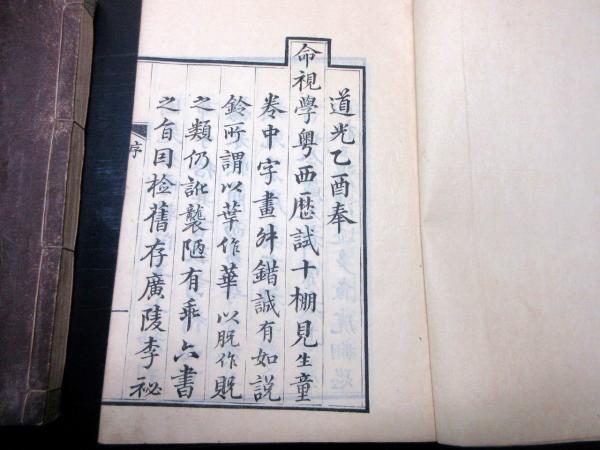 道光乙酉奉
命視學粵西歷試十棚見生童
卷中字畫舛錯誠有如說
鈴所謂以葉作華以脫作貺
之類仍訛襲陋有乖六書
之旨因檢舊存廣陵李祕
序